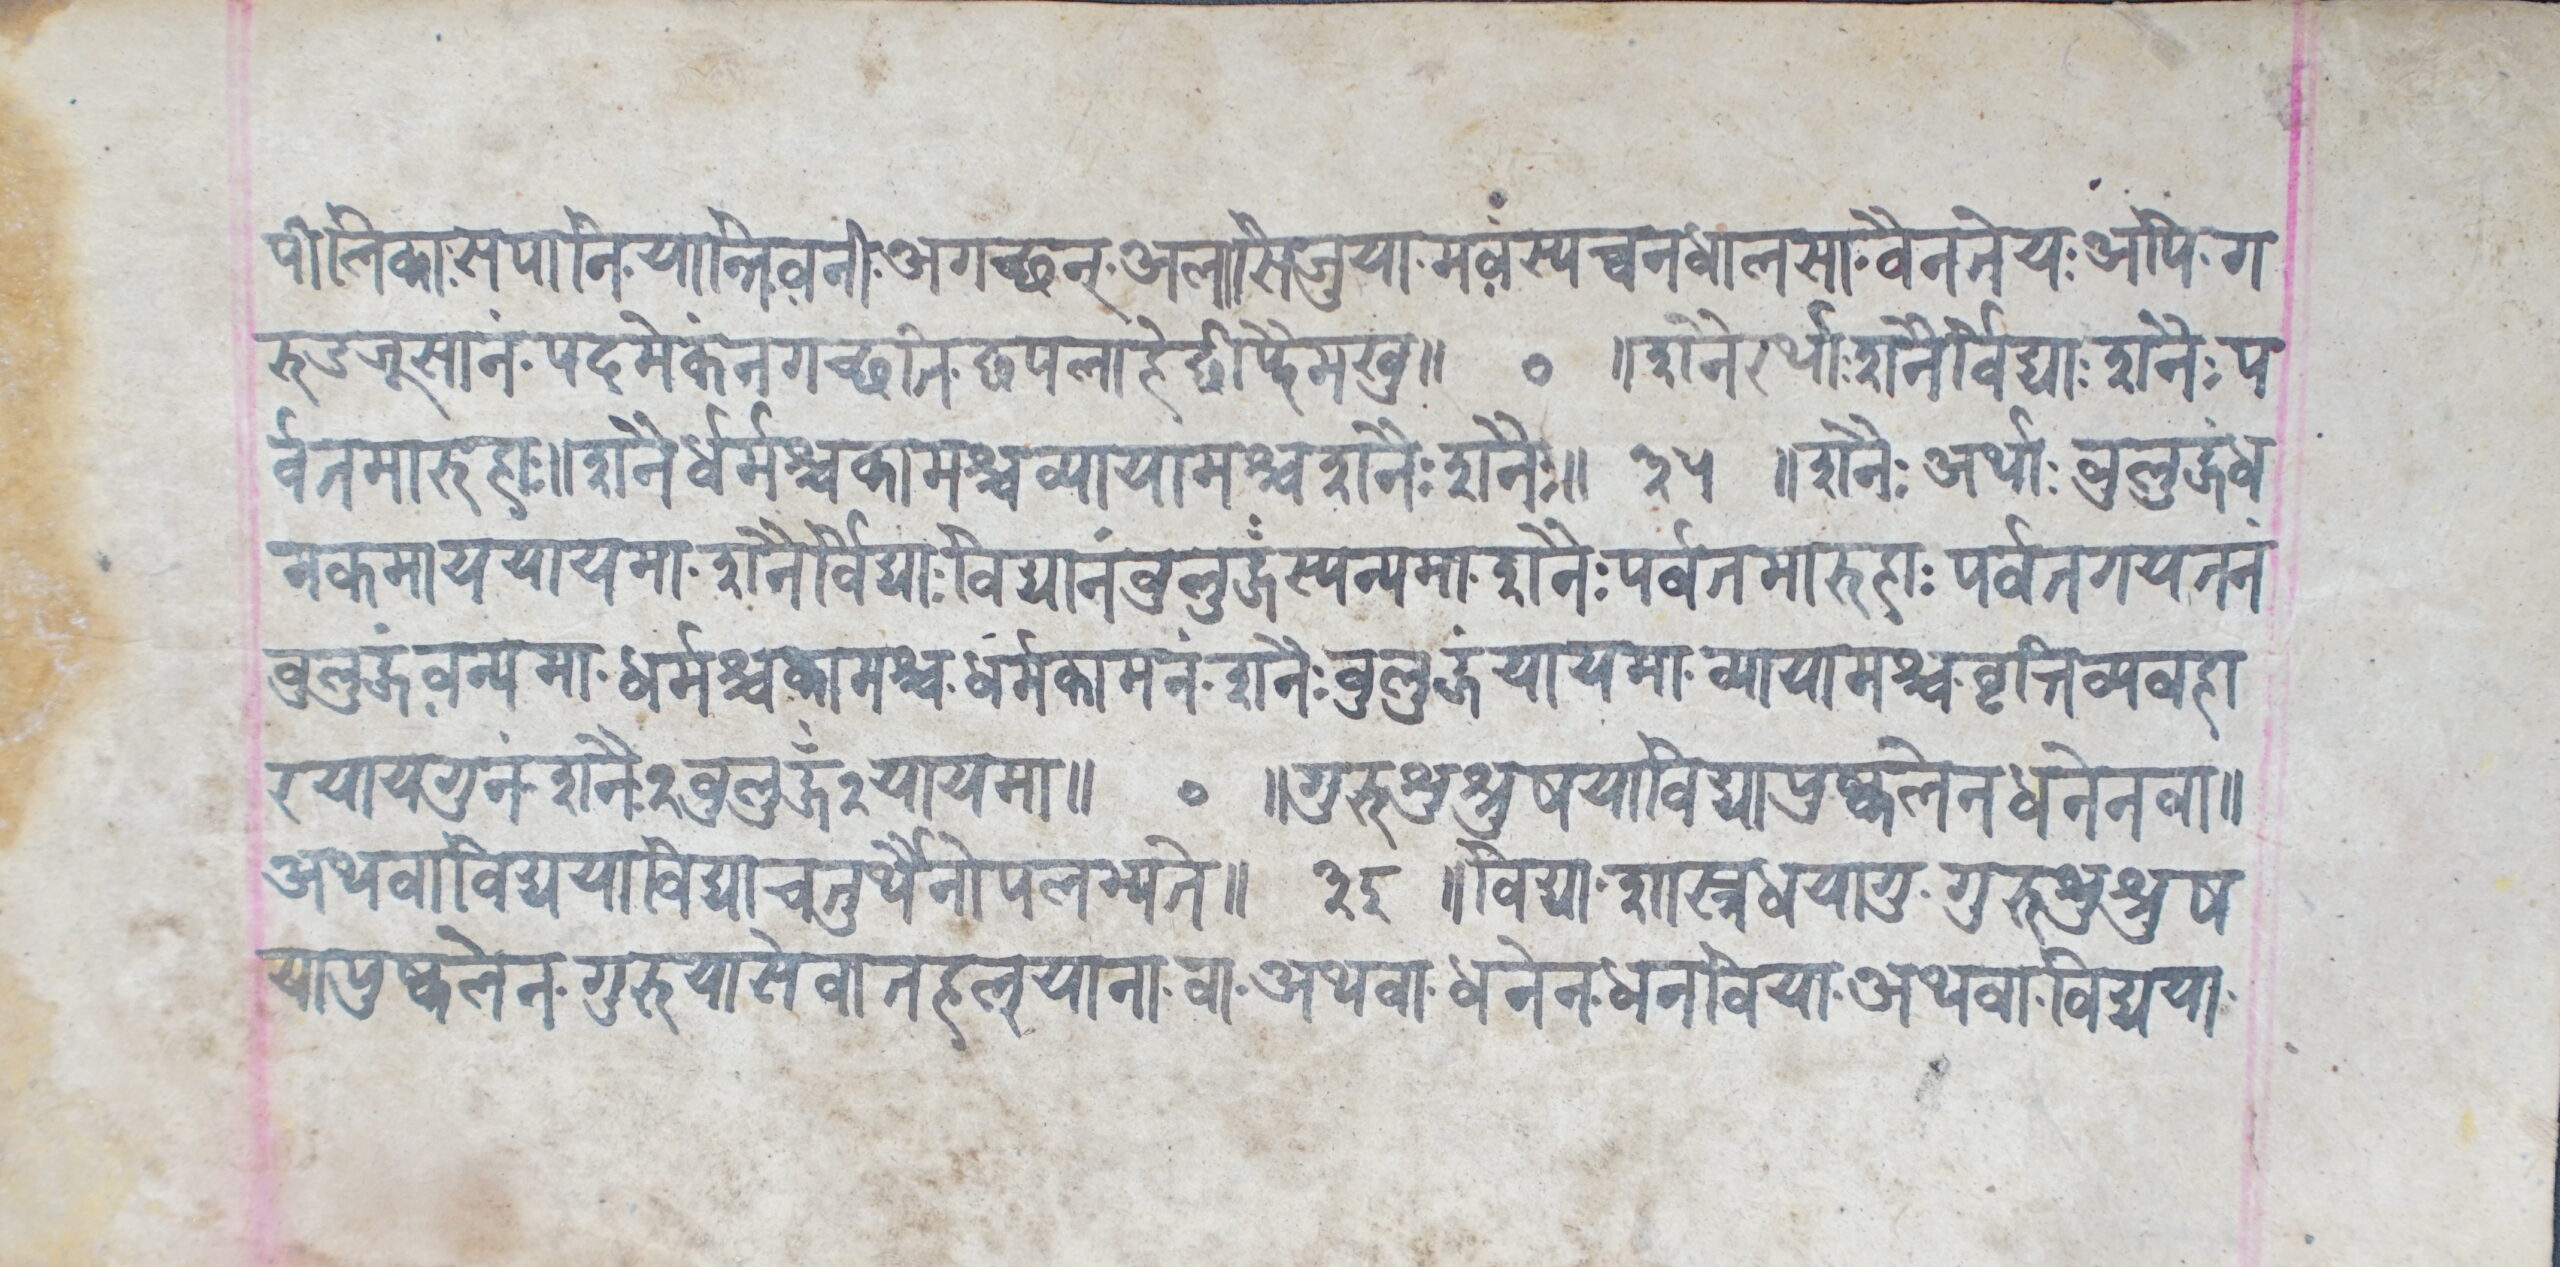 पीलिका॰सपानि॰यान्ति॰वनी॰अगच्छन्॰अलासिजुया॰मव़ंस्यच्वनधालसा॰वैनतेयः॰अपि॰ग
रुडजूसानं॰पदमेकंनगच्छति॰छपलाहे॰छीप्हैमखु॥ ० ॥शनैरर्थाःशनैर्विद्याःशनैःप
र्वतमारुहाः॥शनैर्धर्मश्चकामश्चव्यायामश्चशनैःशनैः॥ २५ ॥शनैः॰अर्थाः॰वुलुह्रंध
नकमाययायमा॰शनैर्विद्याः॰विद्यानंवुलुह्रंस्यन्यमा॰शनैःपर्वतमारुहाः॰पर्वतगयतनं
वुलुह्रंव़न्यमा॰धर्मश्चकामश्च॰धर्मकामनं॰शनैःवुलुह्रंयायमा॰व्यायामश्च॰वृत्तिव्यवहा
रयायगुनं॰शनैः२वुलुह्रं२यायमा॥ ० ॥गुरुश्रुश्रुषयाविद्याप्रुष्कलेनधनेनवा॥
अथवाविद्ययाविद्याचतुर्थैनोपलभ्यते॥ २६ ॥विद्या॰शास्त्रधयागु॰गुरुश्रुश्रुष
याप्रुष्कलेन॰गुरुयासेवातहल्याना॰वा॰अथवा॰धनेन॰धनविया॰अथवा॰विद्यया॰